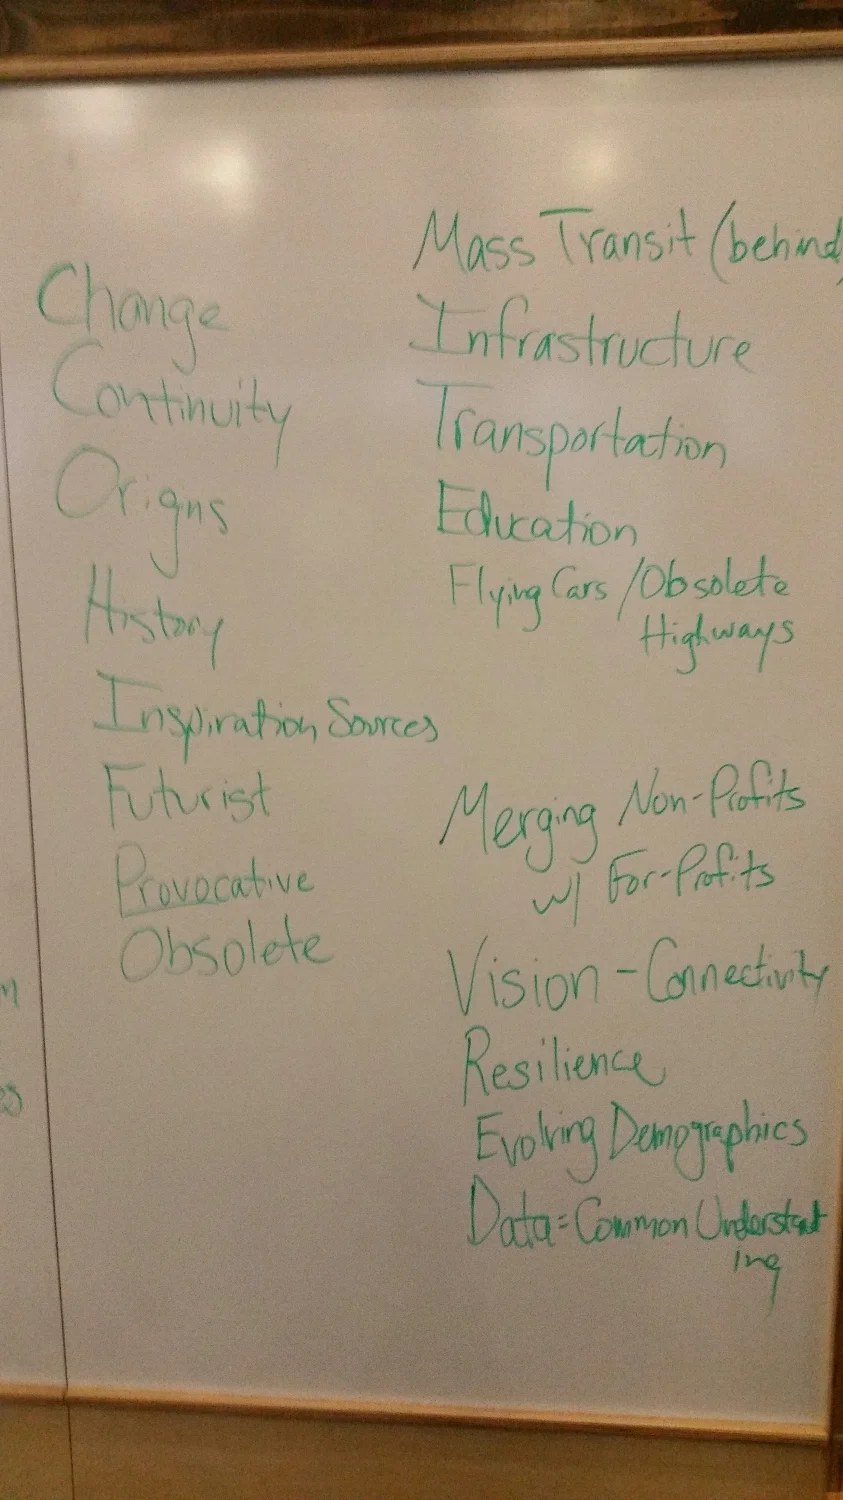 Change
Continuity
Origins
History
Inspiration Sources
Futurist
Provocative
Obsolete
Mass Transit (behind)
Infrastructure
Transportation
Education
Flying Cars / Obsolete
Highways
Merging Non-Profits
w/ For-Profits
Vision - Connectivity
Resilience
Evolving Demographics
Data = Common Understand
ing